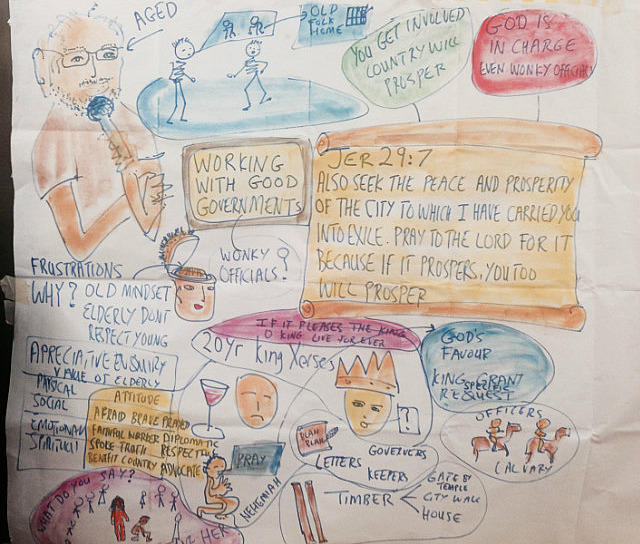 AGED
OLD
FOLK
HOME
YOU GET INVOLVED
COUNTRY WILL
PROSPER
GOD IS
IN CHARGE
EVEN WONKY OFFICIALS
WORKING
WITH GOOD
GOVERNMENTS
WONKY ?
OFFICIALS?
JER 29:7
ALSO SEEK THE PEACE AND PROSPERITY
OF THE CITY TO WHICH I HAVE CARRIED YOU
INTO EXILE. PRAY TO THE LORD FOR IT
BECAUSE IF IT PROSPERS, YOU TOO
WILL PROSPER
FRUSTRATIONS
WHY? OLD MINDSET
ELDERLY DONT
RESPECT YOUNG
APRECIATIVE ENQUIRY
VALUE OF ELDERLY
PHYSICAL
SOCIAL
EMOTIONAL
SPIRITUAL
ATTITUDE
AFRAID BRAVE PRAYED
FAITHFUL WORKER DIPLOMATIC
SPOKE TRUTH RESPECT
BENEFIT COUNTRY ADVOCATE
IF IT PLEASES THE KING
O KING LIVE FOREVER
20Yr King Xerses
?
GOD'S
FAVOUR
KING GRANT
SPECIFIC
REQUEST
OFFICERS
CALVARY
PRAY
NEHEMIAH
PLAN
LETTERS
GOVERNERS
KEEPERS
TIMBER
GATE BY
TEMPLE
CITY WALL
HOUSE
WHAT DO YOU SAY?
HER